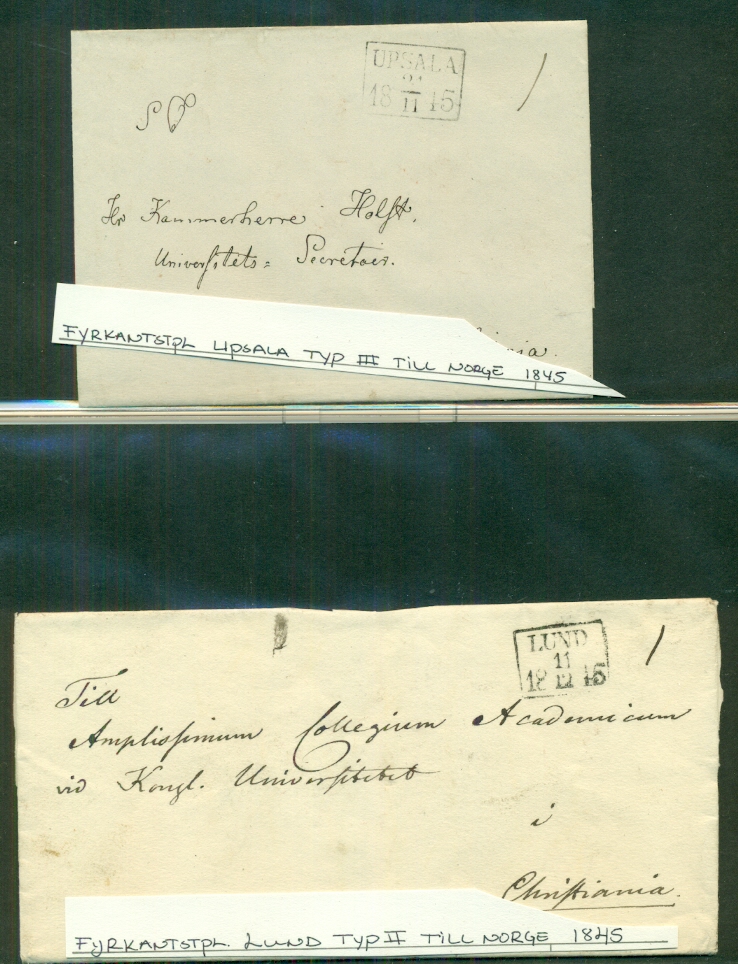 UPSALA
21
18 11 45
Hr Kammerherre Holst.
Universitets= Secretair.
FYRKANTSTPL UPSALA TYP III TILL NORGE 1845
LUND
11
18 12 45
Till
Amplissimum Collegium Academicum
vid Kongl. Universitetet
i
Christiania.
FYRKANTSTPL. LUND TYP II TILL NORGE 1845